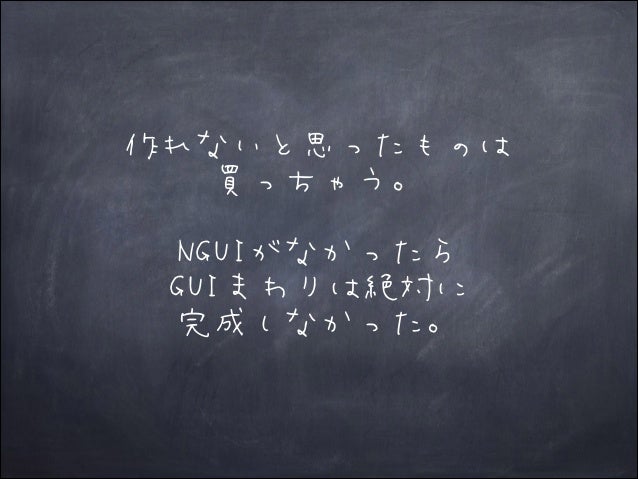 作れないと思ったものは
買っちゃう。
NGUIがなかったら
GUIまわりは絶対に
完成しなかった。